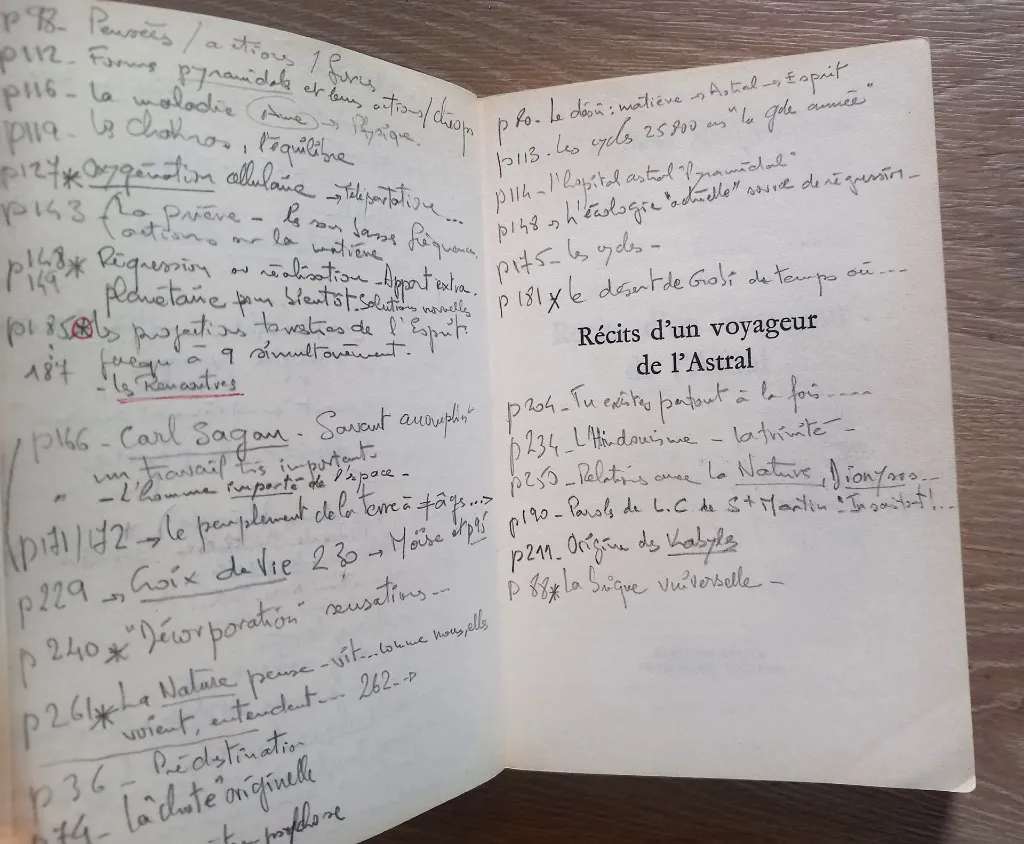 p 98- Pensées / actions 1 
p112- Forme pyramidale et leurs actions/chéops
p116- La maladie Âme → Physique.
p119- Les chakras, l'équilibre
p127* Oxygénation cellulaire → Téléportation...
p143 La prière - les sons basses fréquences
actions sur la matière
p148* Régression ou réalisation- Apport extra.
149 planétaire pour bientôt- Solutions nouvelles
p185* Les projections terrestres de l'Esprit
: jusqu'à 9 simultanément.
187 - Les Rencontres
p166- Carl Sagan- Savant accomplit
un travail très important-
" - L'homme importé de l'espace-
p171/172 → le peuplement de la terre à ≠ âges...>
p229 → Croix de Vie 230 → Moïse et p95
p 240 * "Décorporation" sensations...
p261* La Nature pense - vit... comme nous, elles
voient, entendent... 262-→
p 36 - Prédestination
p74- La chute "originelle
p 80- Le désir: matière → Astral → Esprit
p113- Les cycles 25 800 ans "la gde année"
p114- l'hopital astral "Pyramidal"
p148 → L'écologie "actuelle" source de régression-
p175- les cycles -
p181 * le désert de Gobi du temps où....
Récits d'un voyageur
de l'Astral
p204- Tu existes partout à la fois-----
p234- L'Hindouisme - la trinité -
p250- Relations avec La Nature, Dionysos...
p190- Parols de L.C de St Martin:
p211- Origine des Kabyles
p 88* La brique universelle -